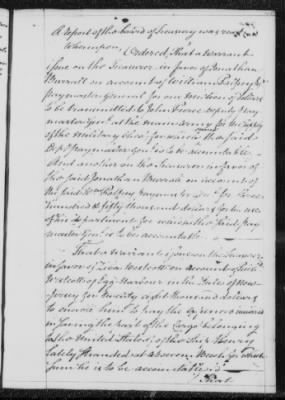 A report of the board of Treasury was read
Whereupon, Ordered, That a warrant
issue on the Treasurer in favor of Jonathan
Burrall on account of William Palfrey Esqr
paymaster General for one million of dollars
to be transmitted to John Pierce deputy pay
master Genl at the main army for the supply
of the military chest for which the said
Depy paymaster Genl is to be accountable.
And another on the Treasurer in favor of
the said Jonathan Burrall on account of
the said Wm Palfrey paymaster Genl for
hundred & fifty thousand dollars for the use
of his department for which the said pay
master Genl is to be accountable.
That a warrant issue on the Treasurer
in favor of on account of
Westcott of Egg Harbour in the State of New
Jersey for twenty eight thousand dollars
to enable him to pay the expences incurred
in saving the part of the Cargo belonging
to the United States, of the Ship Henry
lately stranded at Beach for which
sum he is to be accountable
That